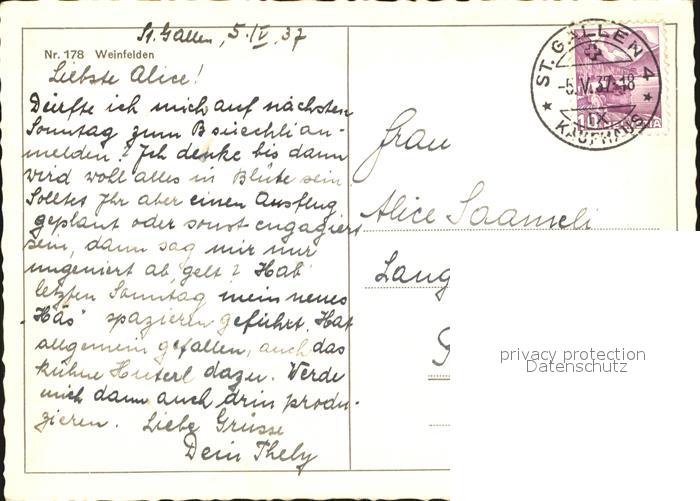 St. Gallen, 5. IV. 37
Nr. 178 Weinfelden
Liebste Alice!
Dürfte ich mich auf nächsten
Sonntag zum Bsüechli an-
melden? Ich denke bis dann
wird woll alles in Blüte sein.
Solltet Ihr aber einen Ausflug
geplant oder sonst engagiert
sein, dann sag mir nur
ungeniert ab, gelt? Hab
letzten Sonntag mein neues
"Häs" spazieren geführt. Hat
allgemein gefallen, auch das
kühne Huterl dazu. Werde
mich dann auch drin produ-
zieren. Liebe Grüsse
Dein Thely
ST. GALLEN 4
-5.V.37-18
IX
KAUFHAUS
Frau
Alice Saameli
Lang
privacy protection
Datenschutz